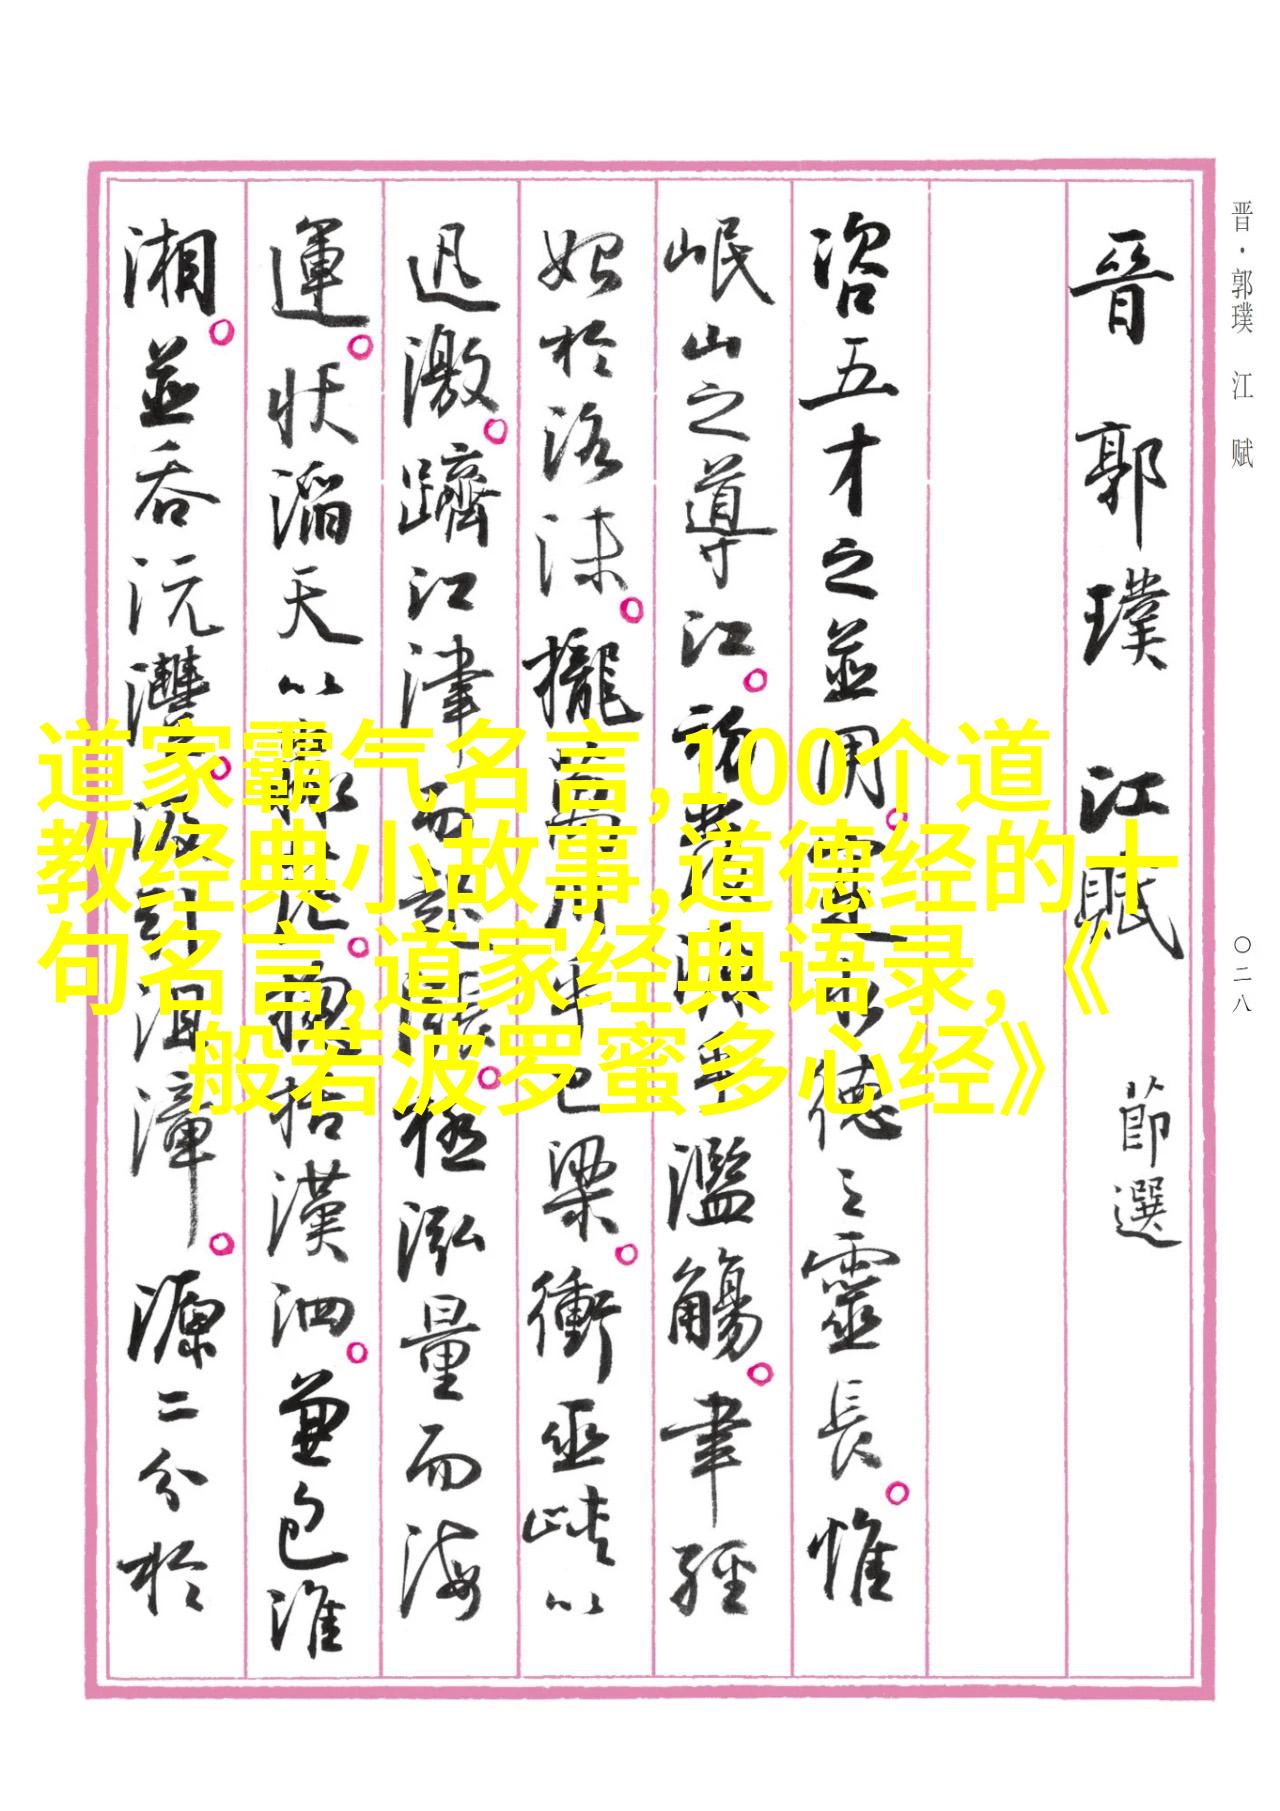 晋·郭璞 江 赋
〇二八
晉 郭 璞 江 賦 節選
咨五才之並用 水德之靈長 惟
岷山之導江 濫觴 聿經
始於洛沫 攏萬川乎巴梁 衝巫峽以
迅激 躋江津而起漲 極泓量而海
運 狀滔天以淼茫 漢泗 兼包淮
湘 並吞沅澧 汲引沮漳 源二分於
道家霸气名言,100个道
教经典小故事,道德经的十
句名言,道家经典语录,《
般若波罗蜜多心经》